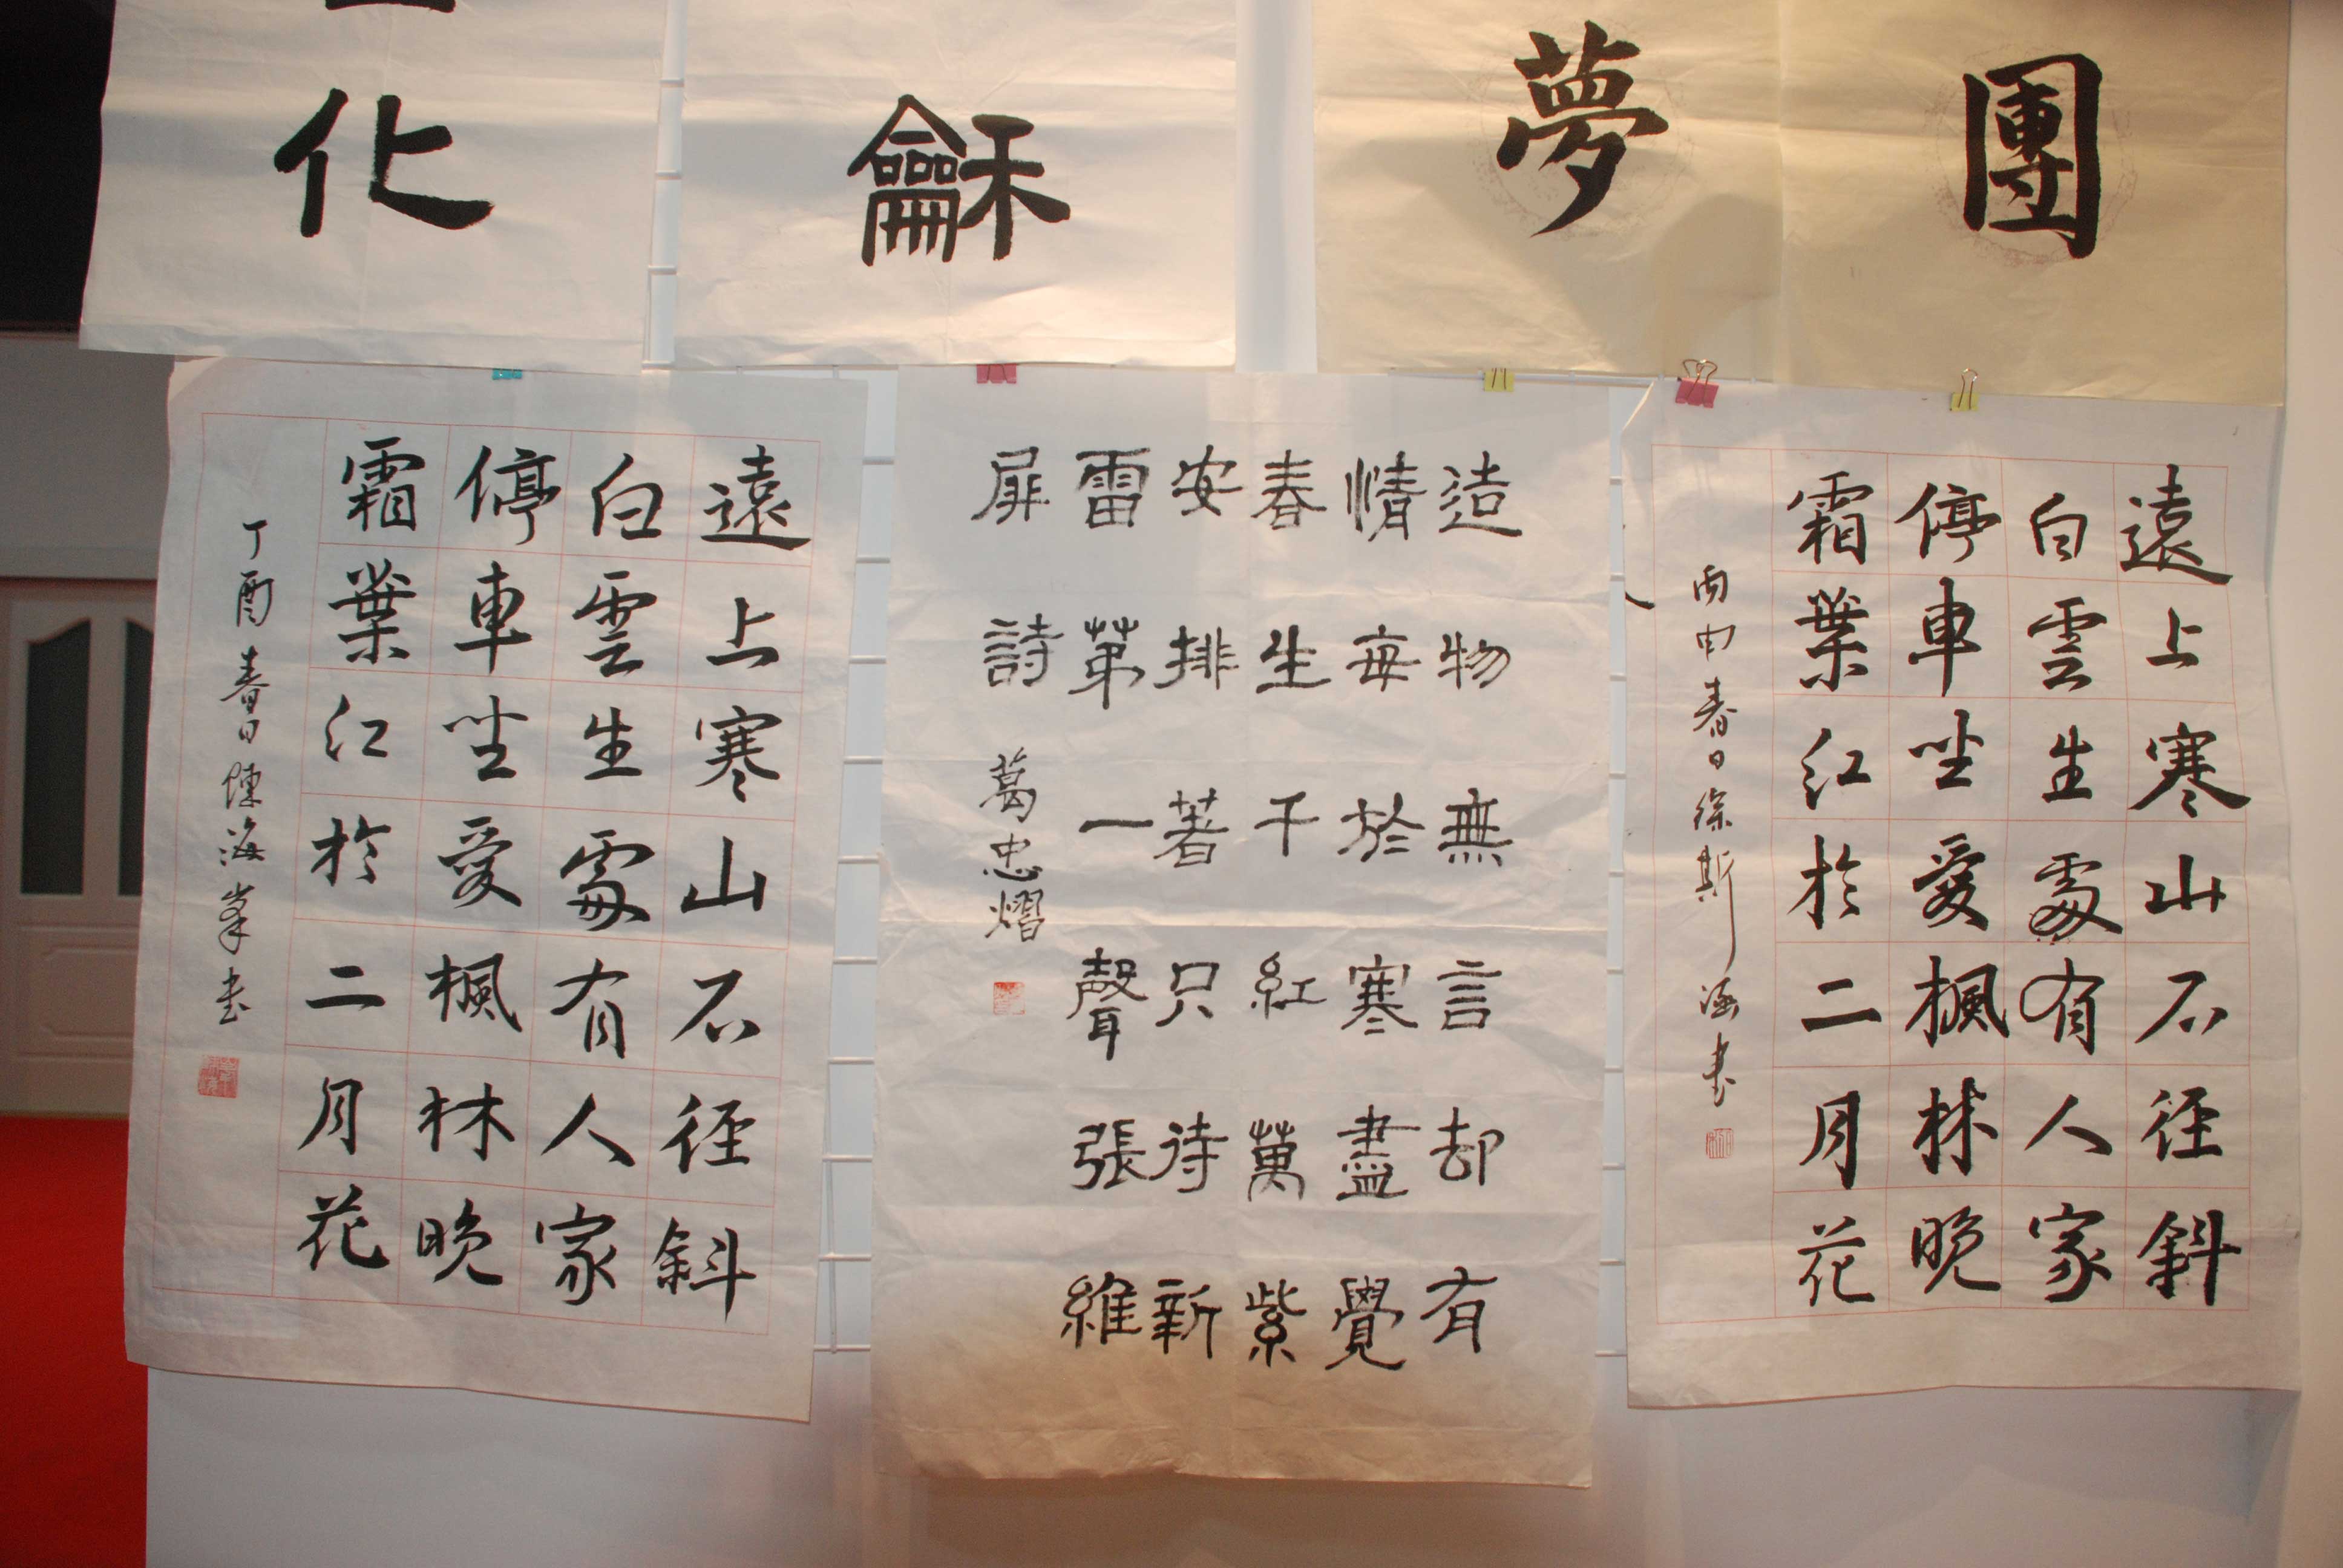 團
夢
龢
化
遠上寒山石徑斜
白雲生處有人家
停車坐愛楓林晚
霜葉紅於二月花
丙申春日徐斯涵書
造物無言却有
情每於寒盡覺
春生千紅萬紫
安排著只待新
雷第一聲張維
屏詩 葛忠熠
遠上寒山石徑斜
白雲生處有人家
停車坐愛楓林晚
霜葉紅於二月花
丁酉春日陳海峯書